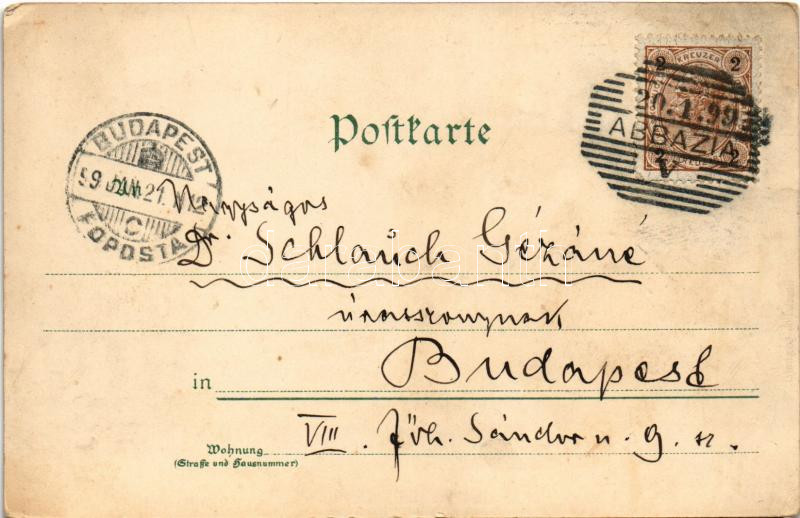 2 KREUZER 2
20.1.99
ABBAZIA
2 2
Postkarte
BUDAPEST
99 JAN. 21.
C
FŐPOSTA
Nagyságos
Dr. Schlauch Gézáné
úrasszonynak
in Budapest
VIII. Föh. Sándor u. 9. sz.
Wohnung
(Straße und Hausnummer)
darabanth